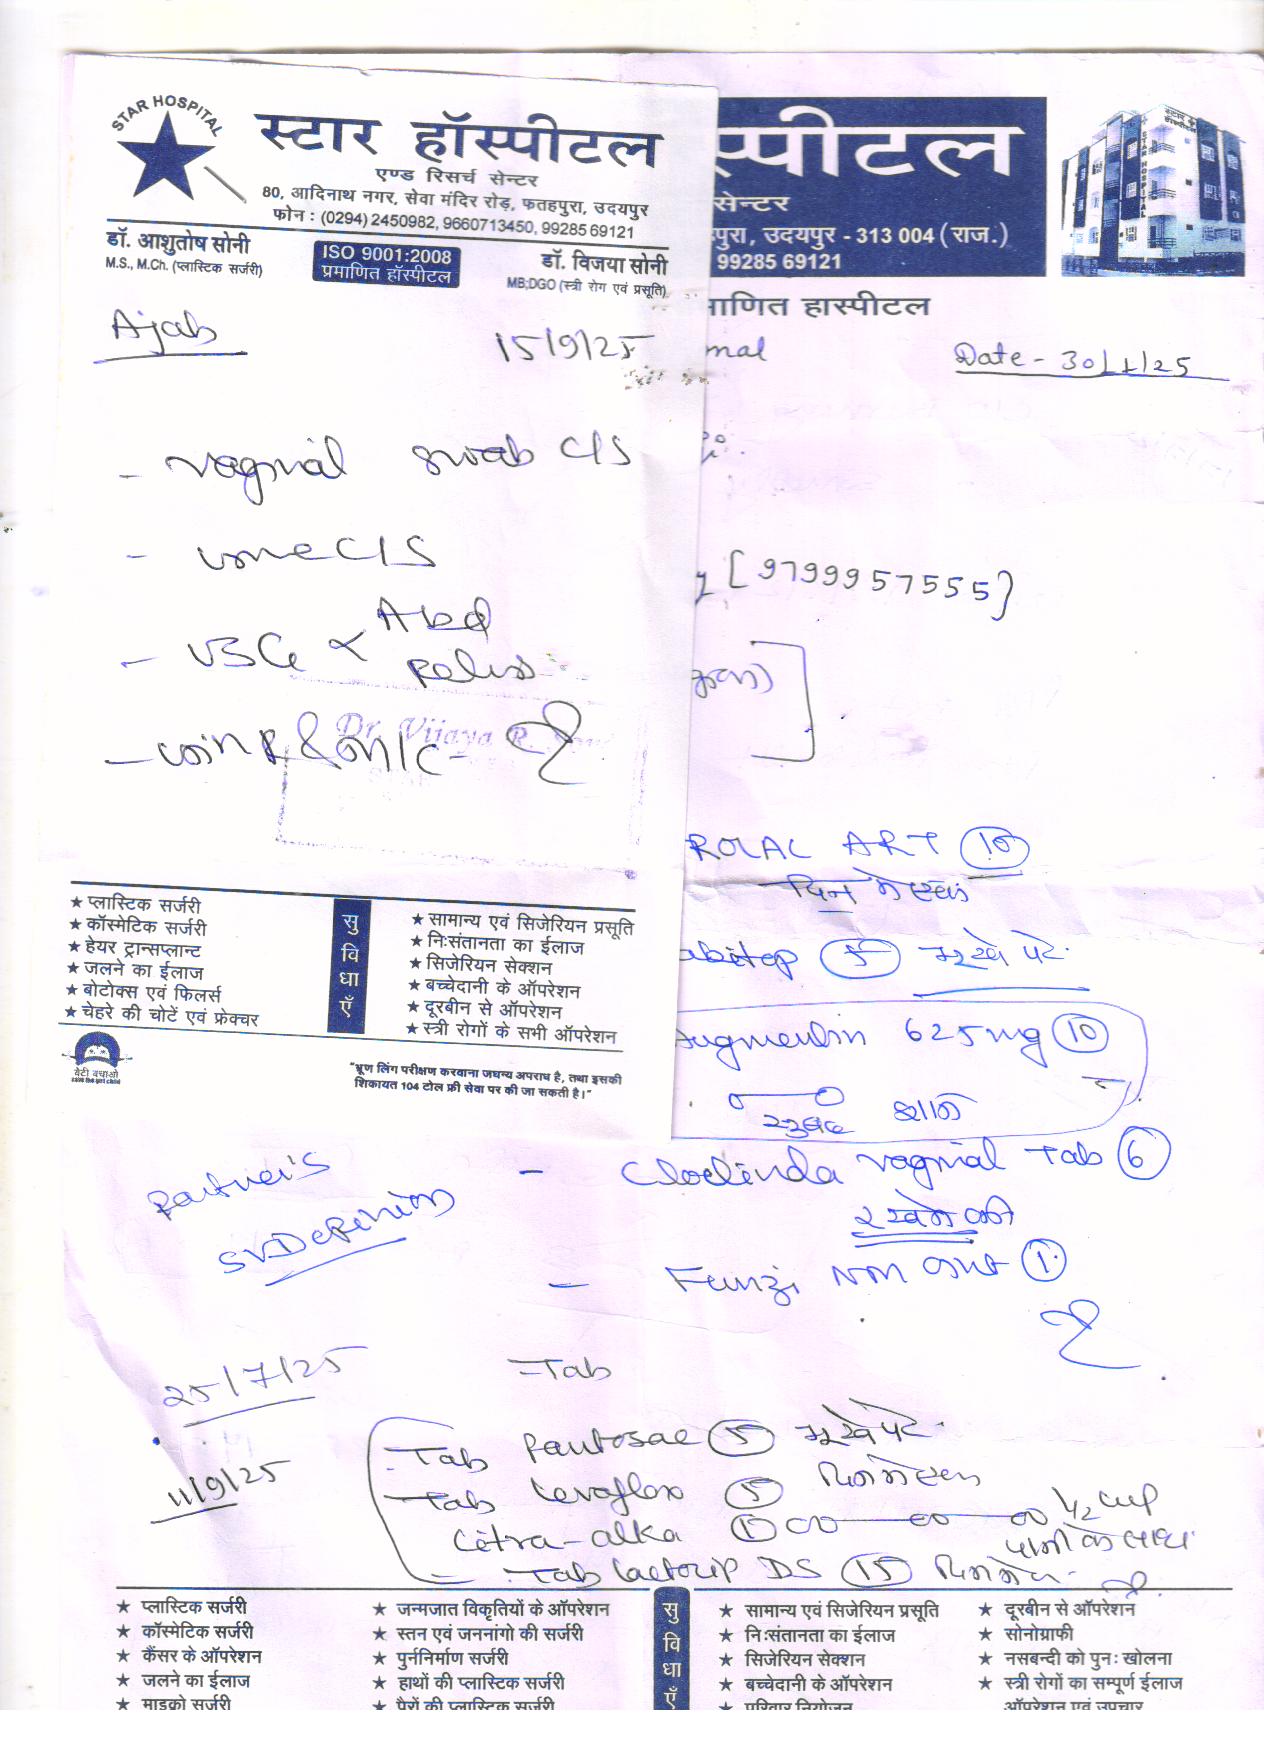 STAR HOSPITAL
स्टार हॉस्पीटल
एण्ड रिसर्च सेन्टर
80, आदिनाथ नगर, सेवा मंदिर रोड़, फतहपुरा, उदयपुर
फोन : (0294) 2450982, 9660713450, 99285 69121
डॉ. आशुतोष सोनी
M.S., M.Ch. (प्लास्टिक सर्जरी)
ISO 9001:2008
प्रमाणित हॉस्पीटल
डॉ. विजया सोनी
MB;DGO (स्त्री रोग एवं प्रसूति)
Ajab
15/9/25
- vaginal swab C/S
- urine C/S
- USG Abd
pelvis
Dr. Vijaya R.
★ प्लास्टिक सर्जरी
★ कॉस्मेटिक सर्जरी
★ हेयर ट्रान्सप्लान्ट
★ जलने का ईलाज
★ बोटोक्स एवं फिलर्स
★ चेहरे की चोटें एवं फ्रेक्चर
सुविधाएँ
★ सामान्य एवं सिजेरियन प्रसूति
★ निःसंतानता का ईलाज
★ सिजेरियन सेक्शन
★ बच्चेदानी के ऑपरेशन
★ दूरबीन से ऑपरेशन
★ स्त्री रोगों के सभी ऑपरेशन
बेटी बचाओ
save the girl child
"भ्रूण लिंग परीक्षण करवाना जघन्य अपराध है, तथा इसकी
शिकायत 104 टोल फ्री सेवा पर की जा सकती है।"
स्पीटल
सेन्टर
पुरा, उदयपुर - 313 004 (राज.)
99285 69121
STAR HOSPITAL
माणित हास्पीटल
mal
Date - 30/1/25
[9799957555]
ROLAC ART 10
5 भूखे पेट
Augmentin 625mg 10
सुबह शाम
- vaginal Tab 6
रखने की
- 1
Partner's
25/7/25
Tab
11/9/25
Tab Pantosac 5 भूखे पेट
Tab 5
Citra-alka 1 1/2 cup
पानी के साथ
Tab DS 15
★ प्लास्टिक सर्जरी
★ कॉस्मेटिक सर्जरी
★ कैंसर के ऑपरेशन
★ जलने का ईलाज
★ माइक्रो सर्जरी
★ जन्मजात विकृतियों के ऑपरेशन
★ स्तन एवं जननांगो की सर्जरी
★ पुर्ननिर्माण सर्जरी
★ हाथों की प्लास्टिक सर्जरी
★ पैरों की प्लास्टिक सर्जरी
सुविधाएँ
★ सामान्य एवं सिजेरियन प्रसूति
★ निःसंतानता का ईलाज
★ सिजेरियन सेक्शन
★ बच्चेदानी के ऑपरेशन
★ परिवार नियोजन
★ दूरबीन से ऑपरेशन
★ सोनोग्राफी
★ नसबन्दी को पुनः खोलना
★ स्त्री रोगों का सम्पूर्ण ईलाज
ऑपरेशन एवं उपचार